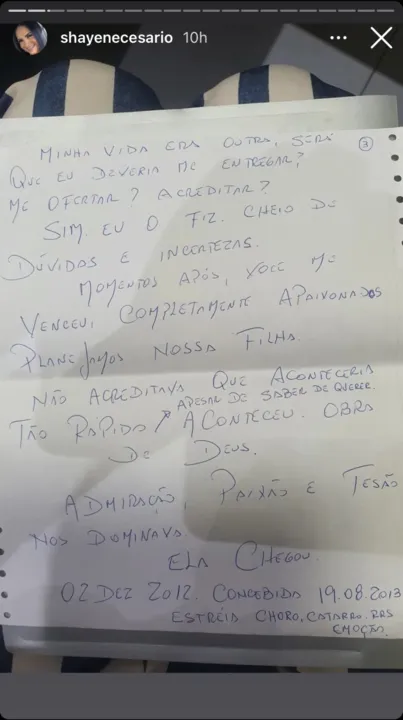 shayenecesario 10h
3
MINHA VIDA ERA OUTRA, SERÁ
QUE EU DEVERIA ME ENTREGAR?
ME OFERTAR? ACREDITAR?
SIM. EU O FIZ. CHEIO DE
DÚVIDAS E INCERTEZAS.
MOMENTOS APÓS, VOCÊ ME
VENCEU, COMPLETAMENTE APAIXONADOS
PLANEJAMOS NOSSA FILHA.
NÃO ACREDITAVA QUE ACONTECERIA
APESAR DE SABER DE QUERER.
TÃO RÁPIDO ACONTECEU. OBRA
DE DEUS.
ADMIRAÇÃO, PAIXÃO E TESÃO
NOS DOMINAVA.
ELA CHEGOU.
02 DEZ 2012. CONCEBIDA 19.08.2013
ESTRÉIA CHORO, CATARRO,
EMOÇÃO.